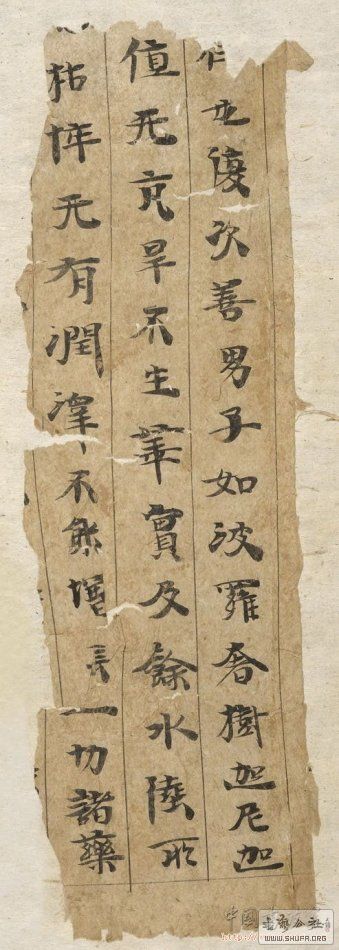 復次善男子如波羅奢樹迦尼迦
值天亢旱不生華實及餘水陸所
枯悴无有潤澤不能增長一切諸藥
中国
書法公社
WWW.SHUFA.ORG